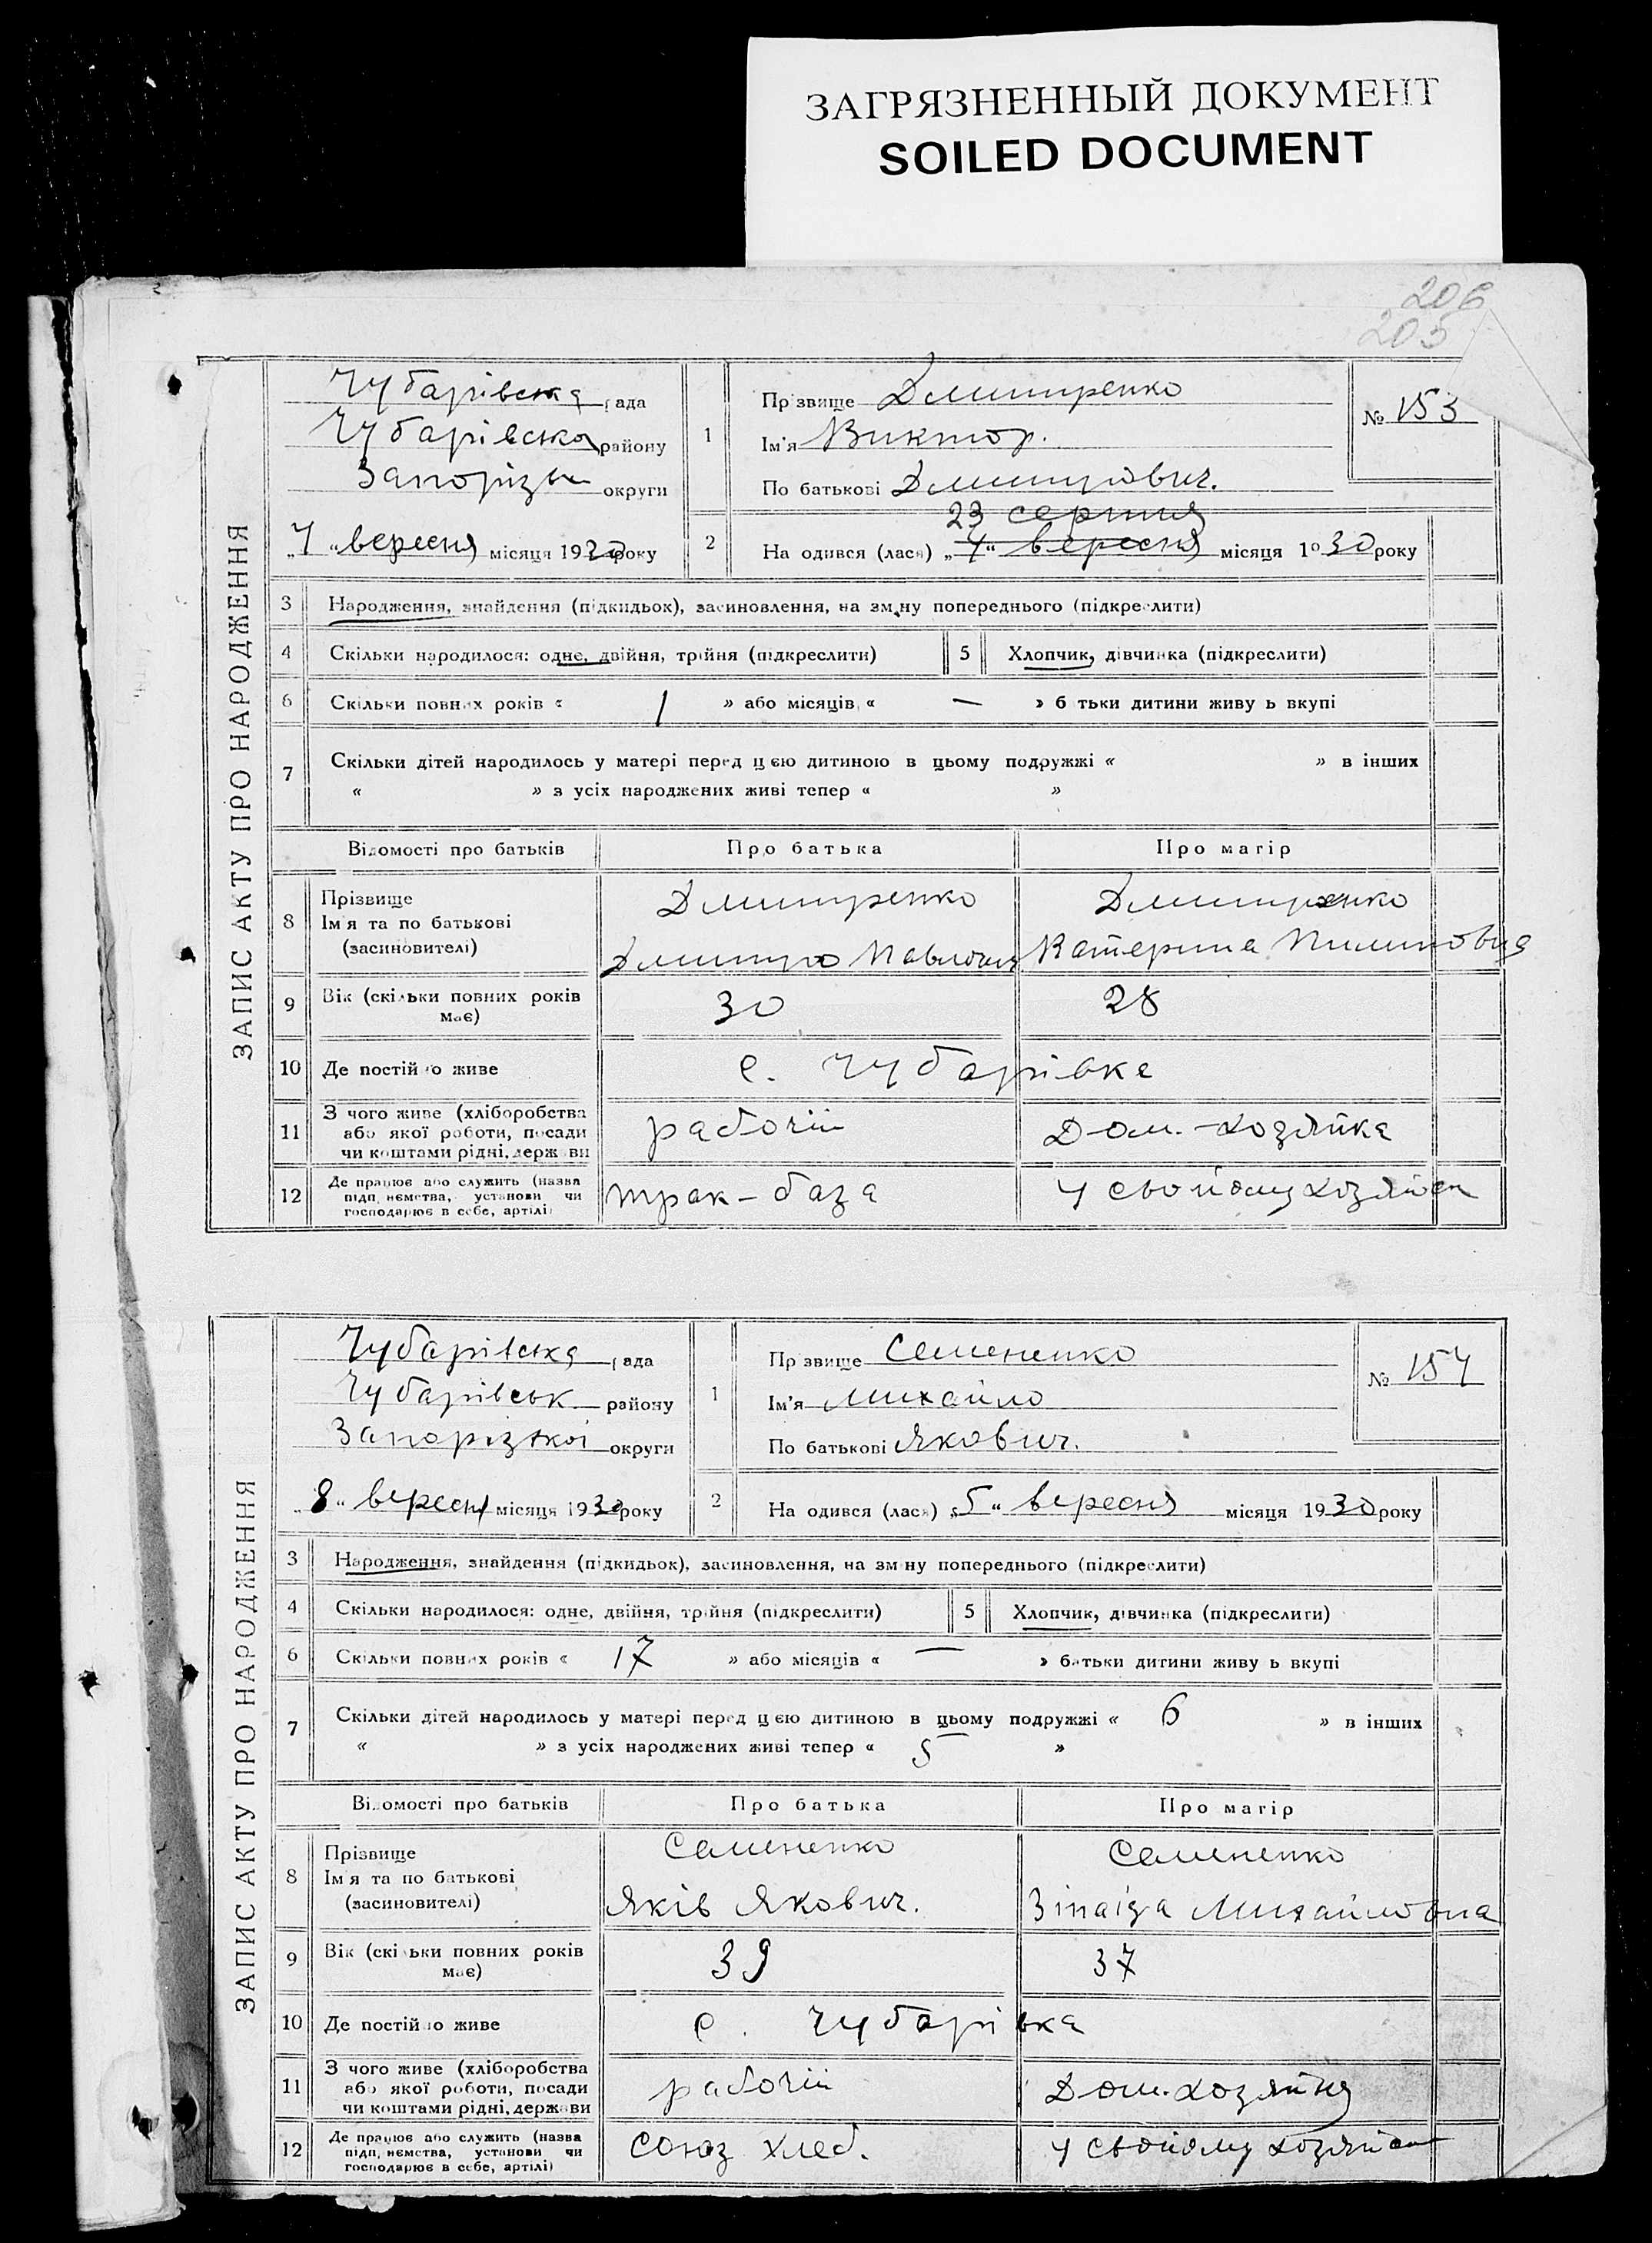 ЗАГРЯЗНЕННЫЙ ДОКУМЕНТ
SOILED DOCUMENT
206
205
ЗАПИС АКТУ ПРО НАРОДЖЕННЯ
Чубарівська рада
Чубарівська району
Запорізьк округи
„7“ вересня місяця 1930 року
1 Прізвище Дмитренко
Ім'я Виктор.
По батькові Дмитрович.
№ 153
23 серпня
2 Народився (лася) „4“ вересня місяця 1930 року
3 Народження, знайдення (підкидьок), засиновлення, на зміну попереднього (підкреслити)
4 Скільки народилося: одне, двійня, трійня (підкреслити) 5 Хлопчик, дівчинка (підкреслити)
6 Скільки повних років « 1 » або місяців « — » батьки дитини живуть вкупі
7 Скільки дітей народилось у матері перед цією дитиною в цьому подружжі « » в інших
« » з усіх народжених живі тепер « »
Відомості про батьків Про батька Про матір
8 Прізвище Дмитренко Дмитренко
Ім'я та по батькові
(засиновителі) Дмитро Павлович Катерина Пилиповна
9 Вік (скільки повних років має) 30 28
10 Де постійно живе с. Чубарівка
11 З чого живе (хліборобства
або якої роботи, посади
чи коштами рідні, держави рабочій Дом.-хозяйка
12 Де працює або служить (назва
підприємства, установи чи
господарює в себе, артілі) трак-база У свойому
ЗАПИС АКТУ ПРО НАРОДЖЕННЯ
Чубарівська рада
Чубарівськ району
Запорізької округи
„8“ вересня місяця 1930 року
1 Прізвище Семененко
Ім'я Михайло
По батькові Якович.
№ 154
2 Народився (лася) „5“ вересня місяця 1930 року
3 Народження, знайдення (підкидьок), засиновлення, на зміну попереднього (підкреслити)
4 Скільки народилося: одне, двійня, трійня (підкреслити) 5 Хлопчик, дівчинка (підкреслити)
6 Скільки повних років « 17 » або місяців « — » батьки дитини живуть вкупі
7 Скільки дітей народилось у матері перед цією дитиною в цьому подружжі « 6 » в інших
« » з усіх народжених живі тепер « 5 »
Відомості про батьків Про батька Про матір
8 Прізвище Семененко Семененко
Ім'я та по батькові
(засиновителі) Яків Якович. Зінаіда Михайловна
9 Вік (скільки повних років має) 39 37
10 Де постійно живе с. Чубарівка
11 З чого живе (хліборобства
або якої роботи, посади
чи коштами рідні, держави рабочій Дом.хозяйка
12 Де працює або служить (назва
підприємства, установи чи
господарює в себе, артілі) союз хлеб. У свойому